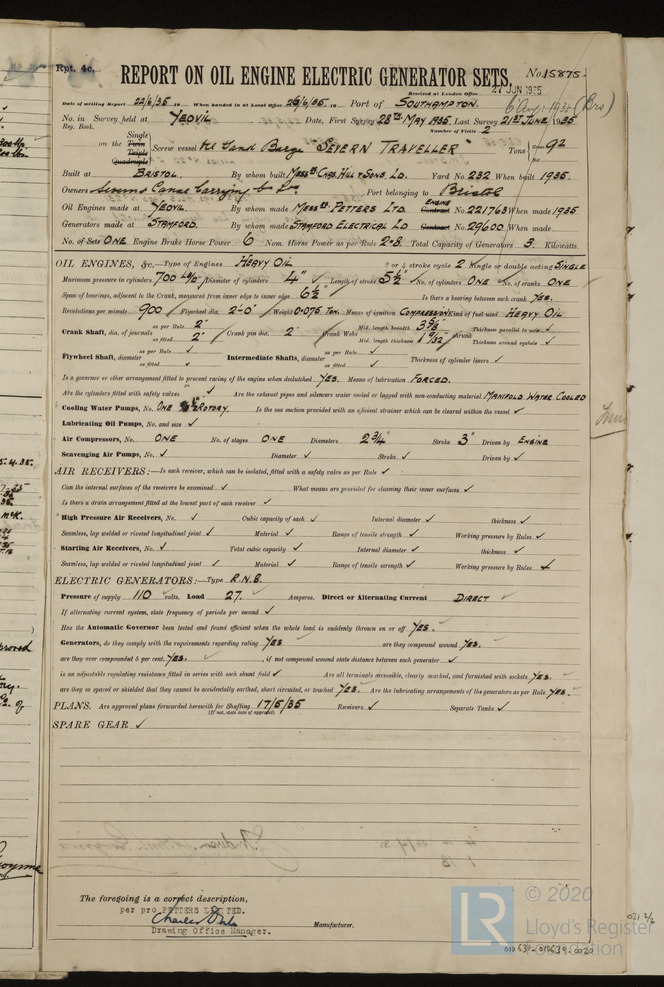 Rpt. 4c.
REPORT ON OIL ENGINE ELECTRIC GENERATOR SETS.
No. 15875.
Received at London Office 27 JUN 1935
Date of writing Report 22/6/35 19 When handed in at Local Office 26/6/35 19 Port of SOUTHAMPTON. 6 Aug: 1935 (Brs)
No. in Survey held at YEOVIL Date, First Survey 28TH MAY 1935 Last Survey 21ST JUNE 1935
Reg. Book. Number of Visits 2
on the Single Twin Triple Quadruple Screw vessel "SEVERN TRAVELLER" Tons Gross 92 Net
Built at BRISTOL By whom built MESSRS CHAS. HILL & SONS. LD. Yard No. 232 When built 1935.
Owners Severn Canal Carrying Co Ld Port belonging to Bristol
Oil Engines made at YEOVIL By whom made MESSRS PETTERS LTD ENGINE Contract No. 221763 When made 1935
Generators made at STAMFORD. By whom made STAMFORD ELECTRICAL LD Contract No. 29600. When made
No. of Sets ONE Engine Brake Horse Power 6 Nom. Horse Power as per Rule 2.8 Total Capacity of Generators 3. Kilowatts.
OIL ENGINES, &c.—Type of Engines HEAVY OIL 2 or 4 stroke cycle 2 Single or double acting SINGLE
Maximum pressure in cylinders 700 LBS/□" Diameter of cylinders 4" ✓ Length of stroke 5½" No. of cylinders ONE No. of cranks ONE
Span of bearings, adjacent to the Crank, measured from inner edge to inner edge 6½" Is there a bearing between each crank YES.
Revolutions per minute 900 Flywheel dia. 2'-0" Weight 0.075 TON. Means of ignition COMPRESSION Kind of fuel used HEAVY OIL
Crank Shaft, dia. of journals as per Rule 2" as fitted 2" Crank pin dia. 2" Crank Webs Mid. length breadth 3⅝" Mid. length thickness 1 9/32" shrunk Thickness parallel to axis ✓ Thickness around eyehole ✓
Flywheel Shaft, diameter as per Rule ✓ as fitted ✓ Intermediate Shafts, diameter as per Rule ✓ as fitted ✓ Thickness of cylinder liners ✓
Is a governor or other arrangement fitted to prevent racing of the engine when declutched YES. Means of lubrication FORCED.
Are the cylinders fitted with safety valves ✓ Are the exhaust pipes and silencers water cooled or lagged with non-conducting material MANIFOLD WATER COOLED
Cooling Water Pumps, No. ONE ROTARY. Is the sea suction provided with an efficient strainer which can be cleared within the vessel ✓
Lubricating Oil Pumps, No. and size ✓
Air Compressors, No. ONE No. of stages ONE Diameters 2¾" Stroke 3" Driven by ENGINE
Scavenging Air Pumps, No. ✓ Diameter ✓ Stroke ✓ Driven by ✓
AIR RECEIVERS:—Is each receiver, which can be isolated, fitted with a safety valve as per Rule ✓
Can the internal surfaces of the receivers be examined ✓ What means are provided for cleaning their inner surfaces ✓
Is there a drain arrangement fitted at the lowest part of each receiver ✓
High Pressure Air Receivers, No. ✓ Cubic capacity of each ✓ Internal diameter ✓ thickness ✓
Seamless, lap welded or riveted longitudinal joint ✓ Material ✓ Range of tensile strength ✓ Working pressure by Rules ✓
Starting Air Receivers, No. ✓ Total cubic capacity ✓ Internal diameter ✓ thickness ✓
Seamless, lap welded or riveted longitudinal joint ✓ Material ✓ Range of tensile strength ✓ Working pressure by Rules ✓
ELECTRIC GENERATORS:—Type R.N.8.
Pressure of supply 110 ✓ volts. Load 27. ✓ Amperes. Direct or Alternating Current DIRECT ✓
If alternating current system, state frequency of periods per second ✓
Has the Automatic Governor been tested and found efficient when the whole load is suddenly thrown on or off YES.
Generators, do they comply with the requirements regarding rating YES ✓ are they compound wound YES. ✓
are they over compounded 5 per cent. YES. ✓, if not compound wound state distance between each generator ✓
is an adjustable regulating resistance fitted in series with each shunt field ✓ Are all terminals accessible, clearly marked, and furnished with sockets YES. ✓
are they so spaced or shielded that they cannot be accidentally earthed, short circuited, or touched YES ✓ Are the lubricating arrangements of the generators as per Rule YES. ✓
PLANS. Are approved plans forwarded herewith for Shafting 17/5/35 Receivers ✓ Separate Tanks ✓
(If not, state date of approval)
SPARE GEAR ✓
The foregoing is a correct description,
per pro PETTERS LIMITED.
Drawing Office Manager. Manufacturer.
© 2020
LR
Lloyd's Register
Foundation
010631-010639-0020
021 2/2